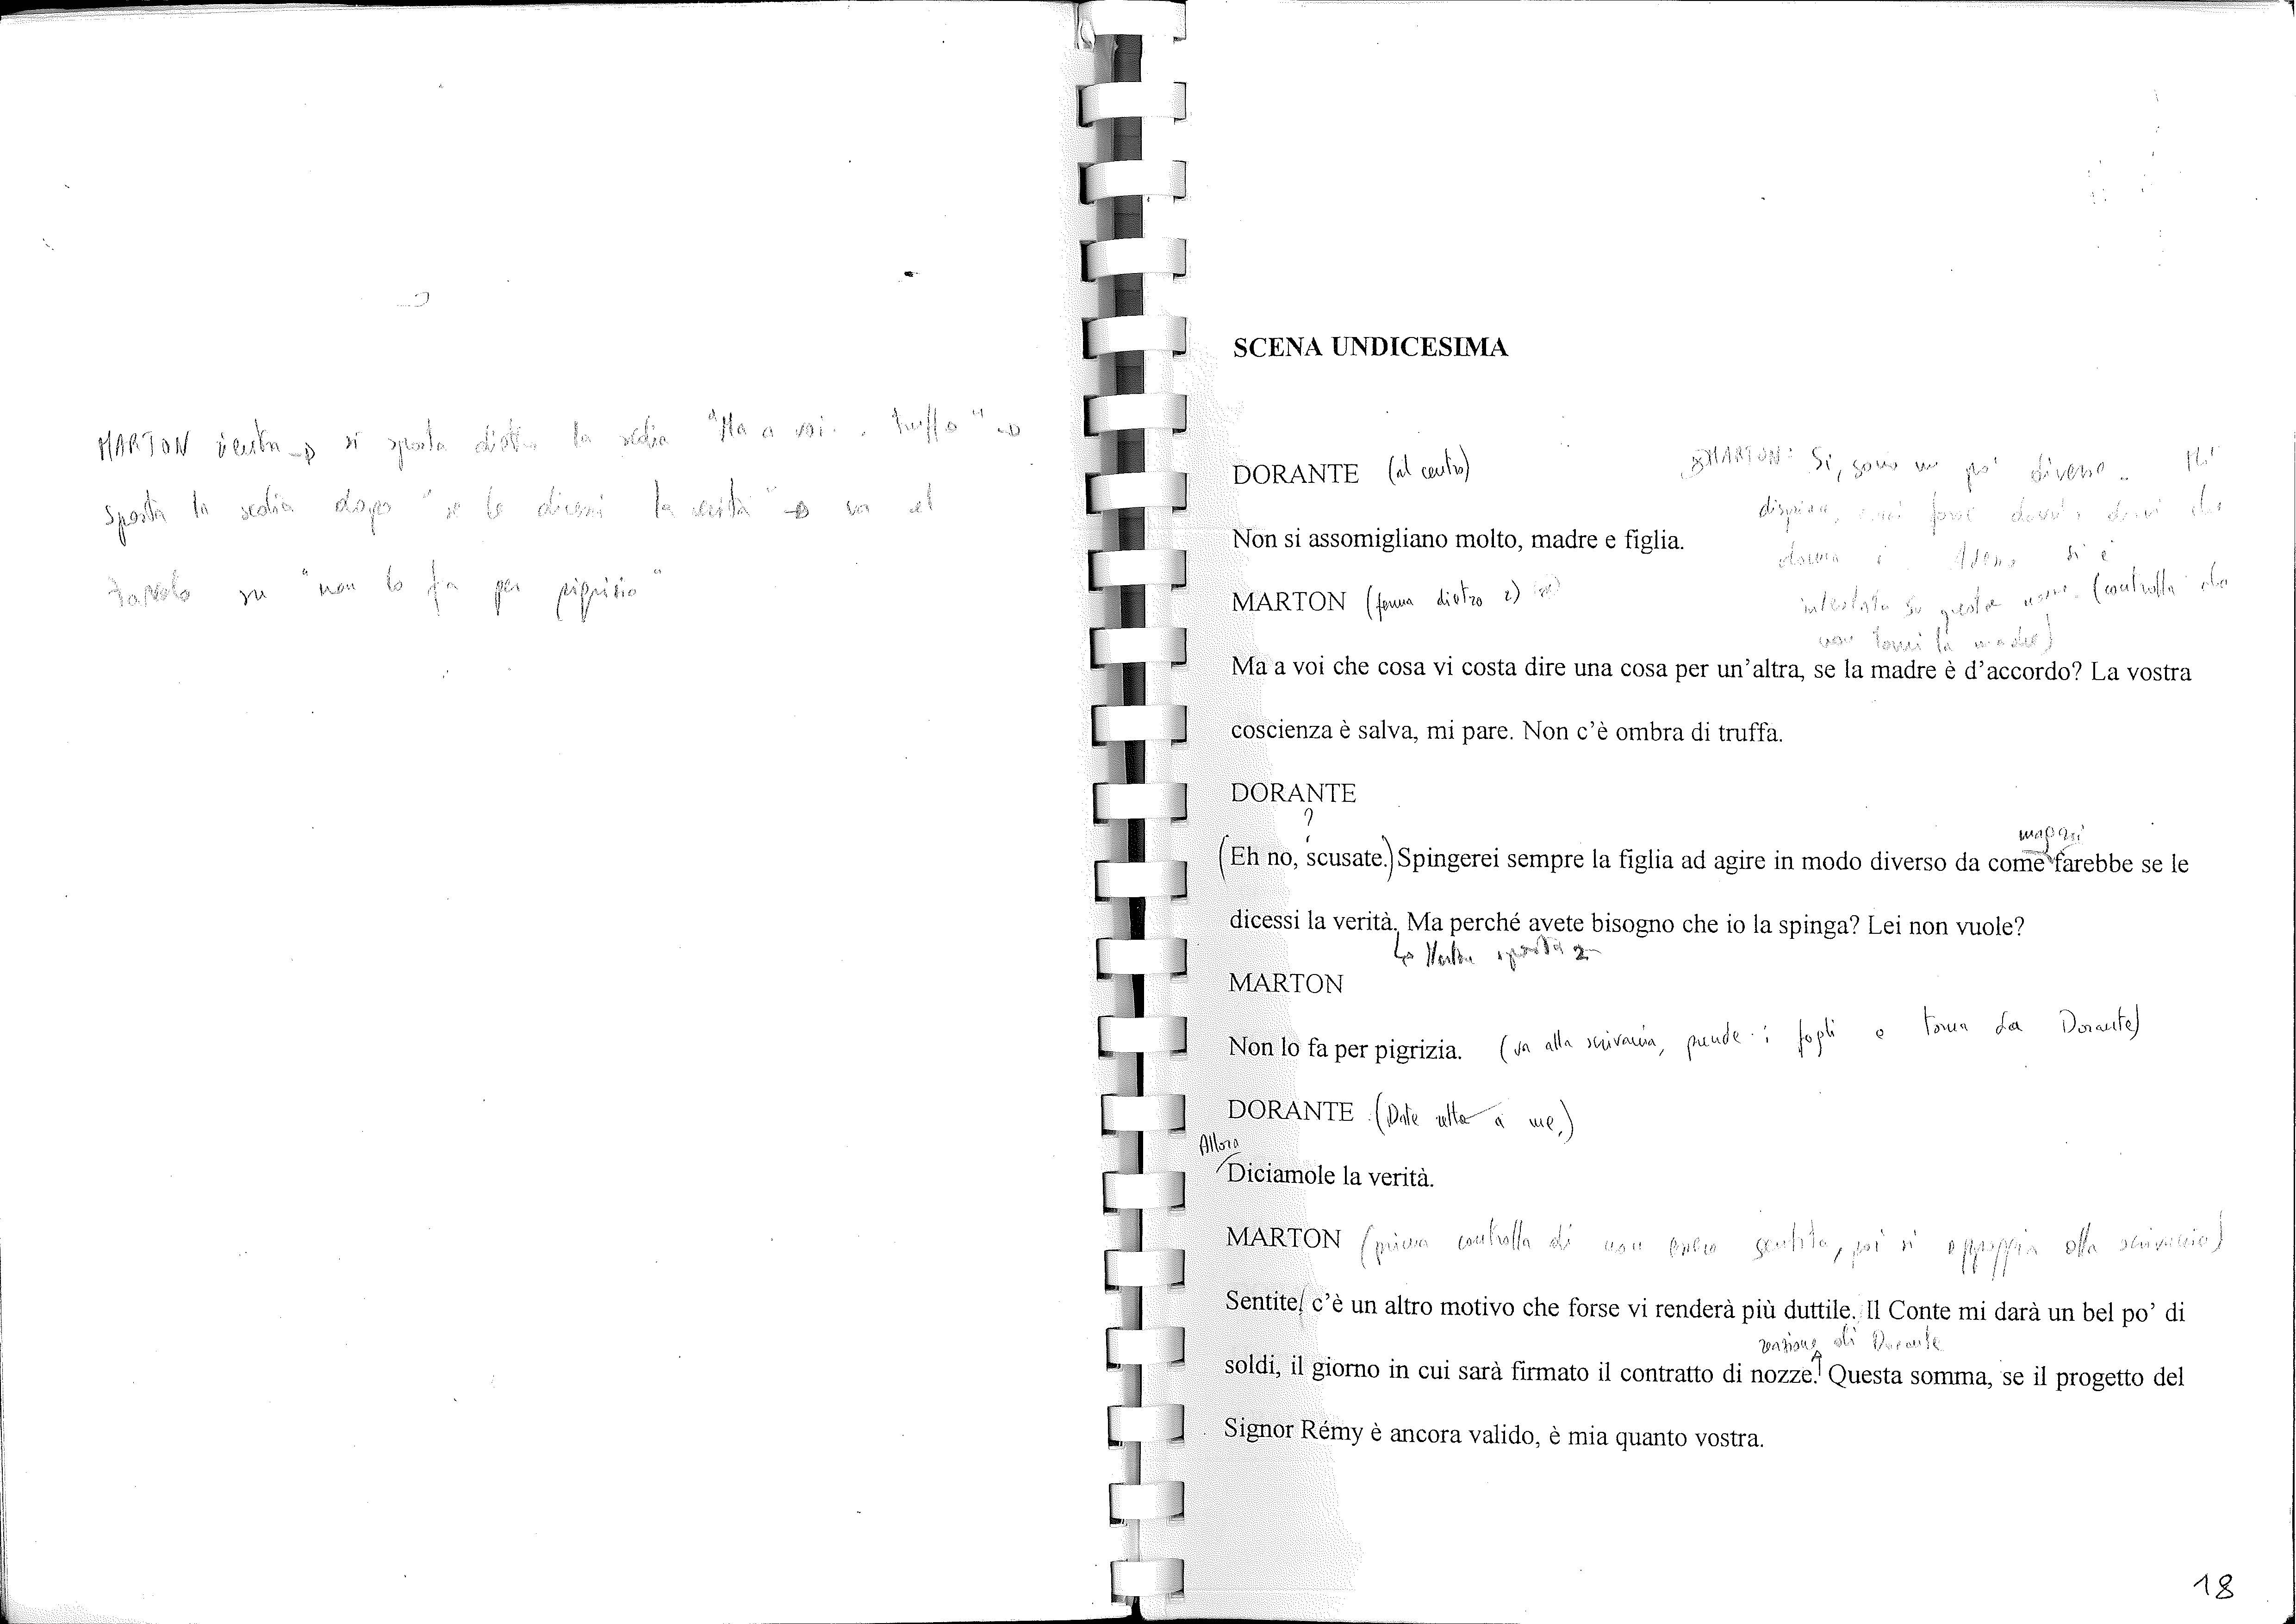 MARTON si sposta dietro la sedia "Ma a voi.. truffa"
sposta la sedia dopo "se le dicessi la verità" va al
tavolo su "non lo fa per pigrizia"
SCENA UNDICESIMA
DORANTE (al centro)
MARTON: Si, sono un po' diverse. Mi
dispiace, forse dovrà dirvi che
Non si assomigliano molto, madre e figlia.
si è
MARTON (ferma dietro 2)
intestata su questa (controlla che
non torni la madre)
Ma a voi che cosa vi costa dire una cosa per un'altra, se la madre è d'accordo? La vostra
coscienza è salva, mi pare. Non c'è ombra di truffa.
DORANTE
?
magari
(Eh no, scusate.) Spingerei sempre la figlia ad agire in modo diverso da come farebbe se le
dicessi la verità. Ma perché avete bisogno che io la spinga? Lei non vuole?
Marton sposta 2
MARTON
Non lo fa per pigrizia. (va alla scrivania, prende i fogli e torna da Dorante)
DORANTE (Date retta a me.)
Allora
Diciamole la verità.
MARTON (prima controlla di non essere sentita, poi si appoggia alla scrivania)
Sentite, c'è un altro motivo che forse vi renderà più duttile. Il Conte mi darà un bel po' di
reazione di Dorante
soldi, il giorno in cui sarà firmato il contratto di nozze. Questa somma, se il progetto del
Signor Rémy è ancora valido, è mia quanto vostra.
18